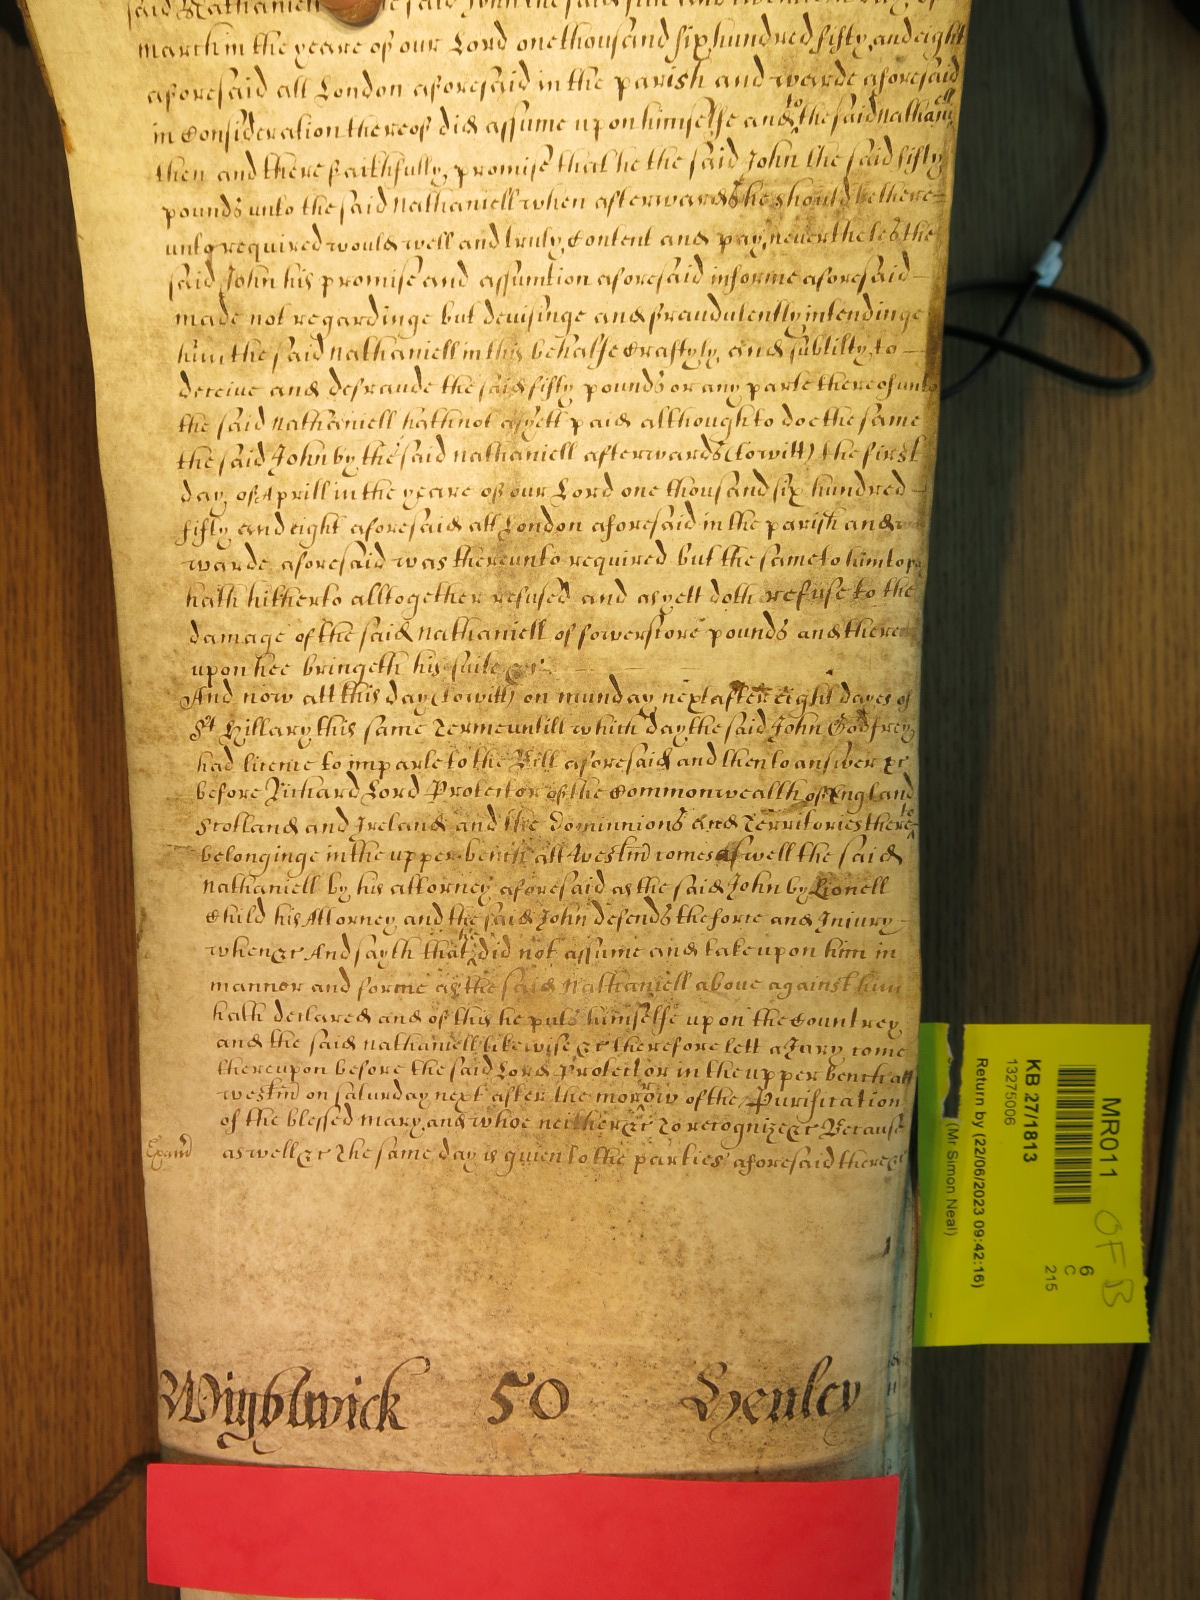 said Nathaniell the said John the said
march in the yeare of our Lord one thousand six hundred fifty and eight
aforesaid att London aforesaid in the parish and warde aforesaid
in Consideration thereof did assume upon himselfe and to the said Nathaniell
then and there faithfully promise that he the said John the said fifty
pounds unto the said Nathaniell when afterwards he should be there-
unto required would well and truly Content and pay neverthelesse the
said John his promise and assumtion aforesaid in forme aforesaid
made not regardinge but devisinge and fraudulently intendinge
him the said Nathaniell in this behalfe Craftyly and subtilty to
deceive and defraude the said fifty pounds or any parte thereof unto
the said Nathaniell hath not as yett paid although to doe the same
the said John by the said Nathaniell afterwards (to witt) the first
day of Aprill in the yeare of our Lord one thousand six hundred
fifty and eight aforesaid att London aforesaid in the parish and
warde aforesaid was thereunto required but the same to him to
hath hitherto alltogether refused and as yett doth refuse to the
damage of the said Nathaniell of fowerscore pounds and there
upon hee bringeth his suite &c
And now att this day (to witt) on munday next after eight dayes of
St Hillary this same Terme untill which day the said John Godfrey
had licence to imparle to the Bill aforesaid and then to answer &c
before Richard Lord Protector of the Commonwealth of England
Scotland and Ireland and the Dominnions and Territories thereto
belonginge in the upper bench att Westm̃ comes as well the said
Nathaniell by his attorney aforesaid as the said John by Lionell
Child his Attorney and the said John defends the force and Injury
when &c And sayth that he did not assume and take upon him in
manner and forme as the said Nathaniell above against him
hath declared and of this he puts himselfe upon the Countrey
and the said Nathaniell likewise &c therefore lett a Jury come
thereupon before the said Lord Protector in the upper bench att
westm̃ on saturday next after the morrow of the Purification
of the blessed mary and whoe neither &c To recognize &c Because
as well &c The same day is given to the parties aforesaid there &c
Wightwick 50 Henley
MR011
KB 27/1813
13275006
Return by (22/06/2023 09:42:16)
(Mr Simon Neal)
6
C
215
OF B